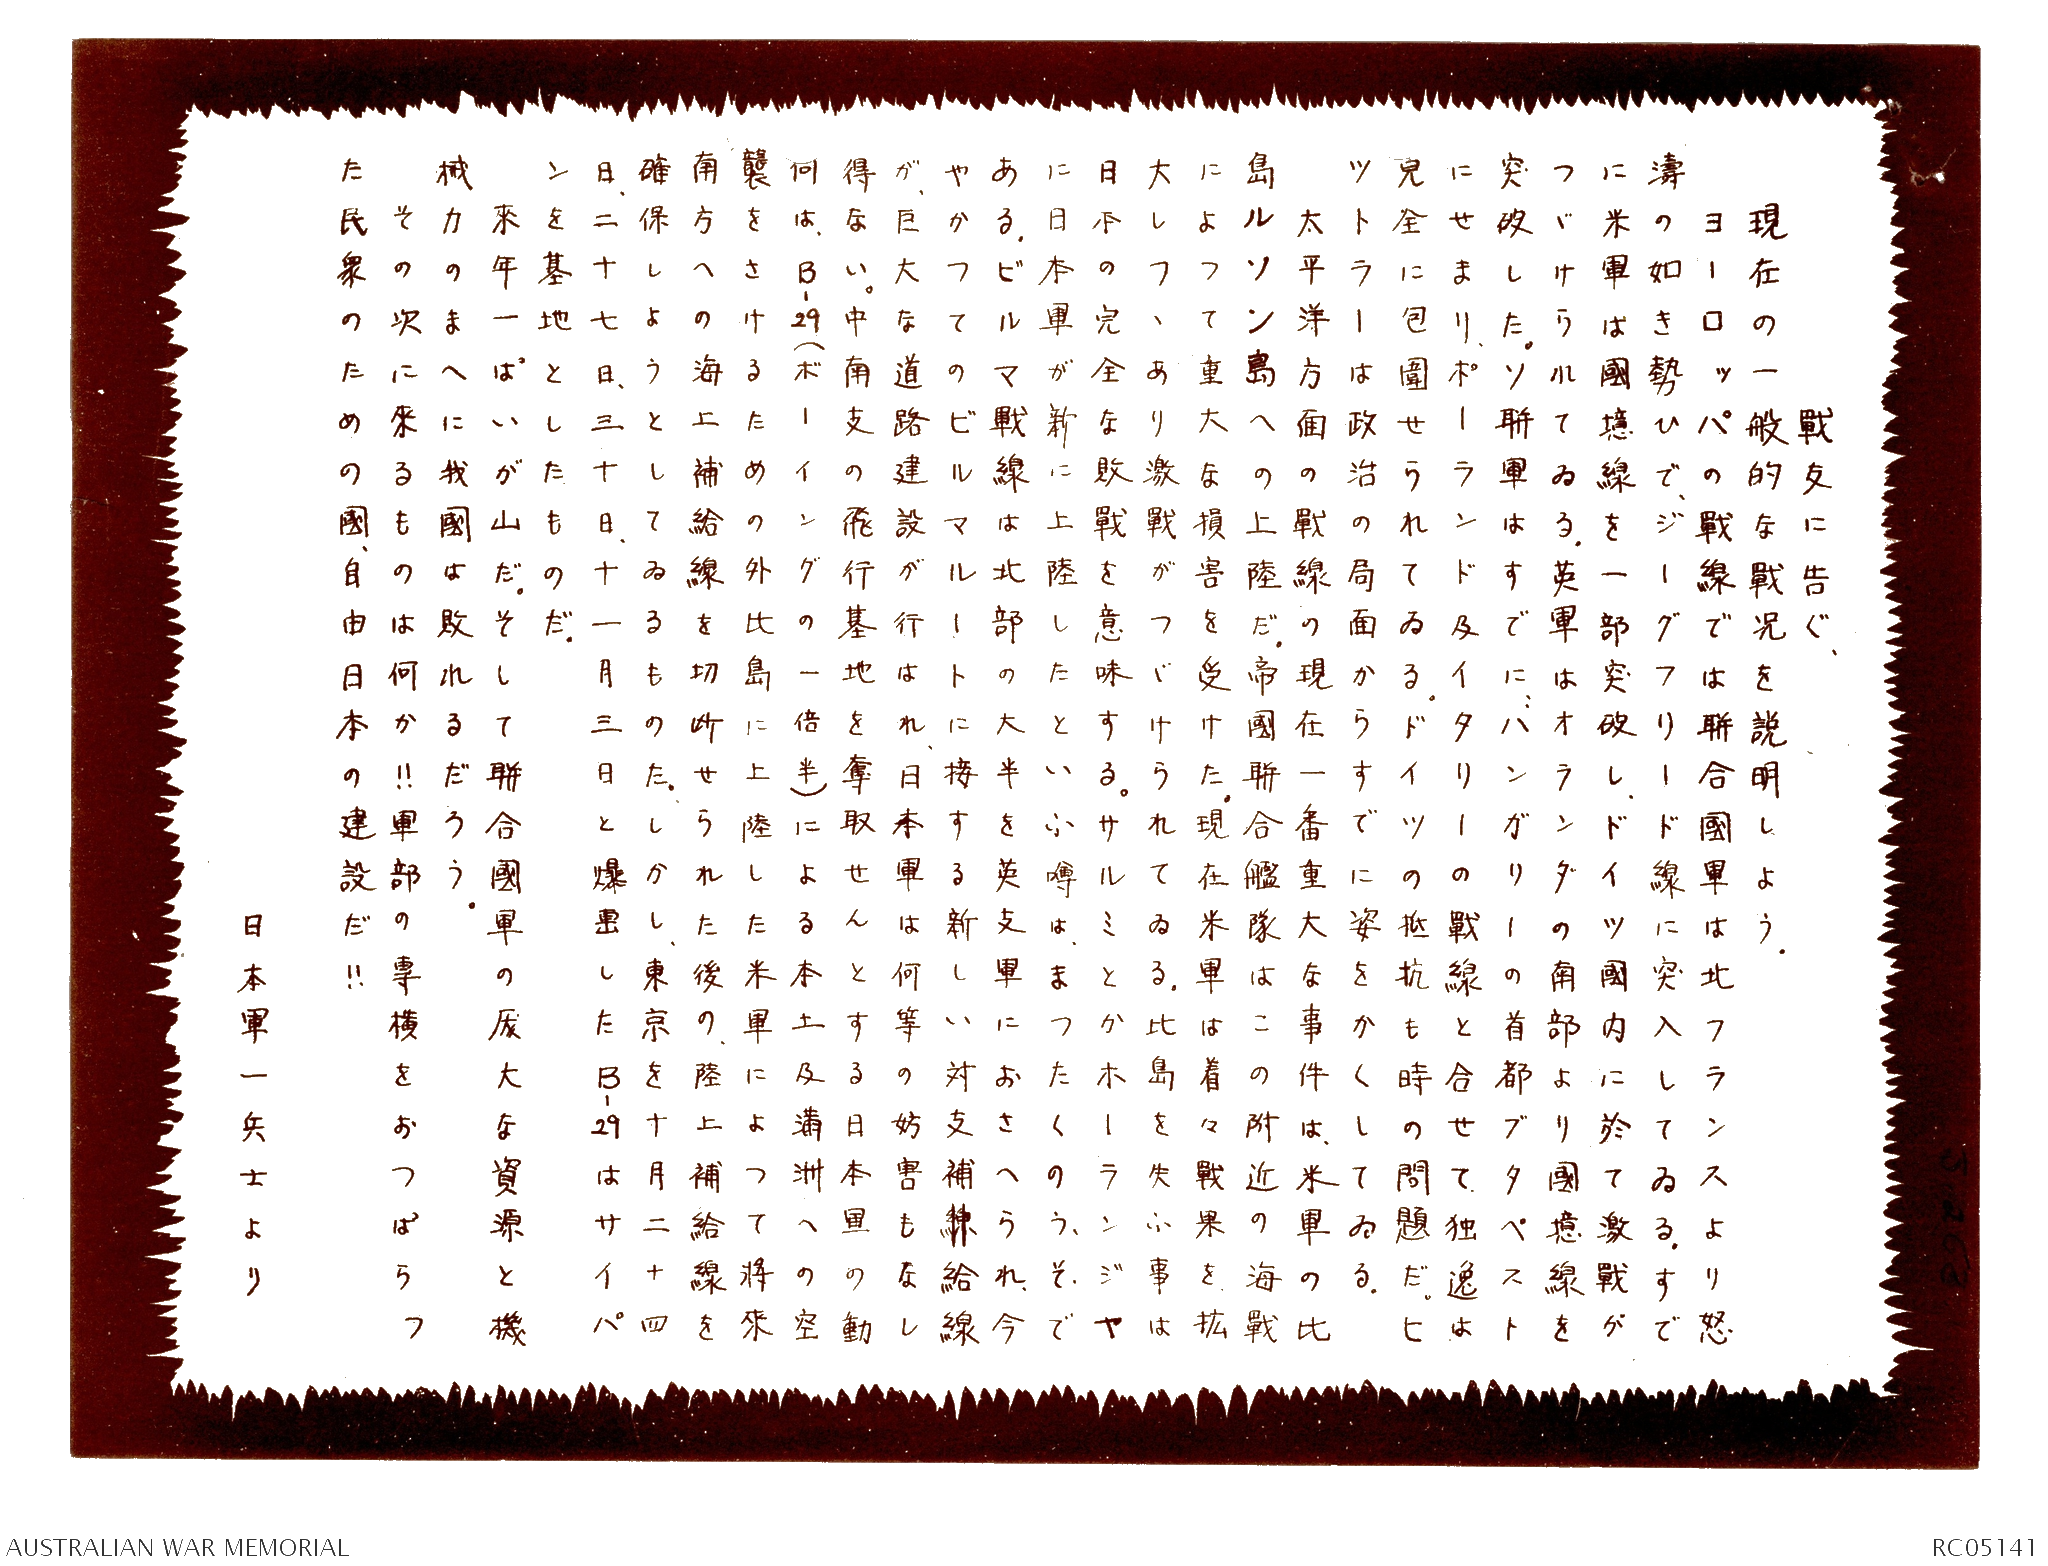 戰友に告ぐ、
現在の一般的な戰況を説明しよう.
ヨーロッパの戰線では聯合國軍は北フランスより怒
濤の如き勢ひで、ジーグフリード線に突入してゐる.すで
に米軍は國境線を一部突破し、ドイツ國内に於て激戰が
つゞけられてゐる.英軍はオランダの南部より國境線を
突破した.ソ聯軍はすでに、ハンガリーの首都ブタペスト
にせまり、ポーランド及イタリーの戰線と合せて、独逸は
完全に包圍せられてゐる.ドイツの抵抗も時の問題だ.ヒ
ットラーは政治の局面からすでに姿をかくしてゐる.
太平洋方面の戰線の現在一番重大な事件は、米軍の比
島ルソン島への上陸だ.帝國聯合艦隊はこの附近の海戰
によつて重大な損害を受けた.現在米軍は着々戰果を拡
大しつゝあり激戰がつゞけられてゐる.比島を失ふ事は
日本の完全な敗戰を意味する。サルミとかホーランジヤ
に日本軍が新に上陸したといふ噂は、まつたくのうそで
ある.ビルマ戰線は北部の大半を英支軍におさへられ、今
やかつてのビルマルートに接する新しい対支補給線
が、巨大な道路建設が行はれ、日本軍は何等の妨害もなし
得ない。中南支の飛行基地を奪取せんとする日本軍の動
何は、B-29(ボーイングの一倍半)による本土及満洲への空
襲をさけるための外比島に上陸した米軍によつて將來
南方への海上補給線を切断せられた後の、陸上補給線を
確保しようとしてゐるものだ.しかし、東京を十月二十四
日、二十七日、三十日、十一月三日と爆撃したB-29はサイパ
ンを基地としたものだ.
來年一ぱいが山だ.そして聯合國軍の厖大な資源と機
械力のまへに我國は敗れるだろう.
その次に來るものは何か!!軍部の専横をおつぱらつ
た民衆のための國、自由日本の建設だ!!
日本軍一兵士より
AUSTRALIAN WAR MEMORIAL
RC05141